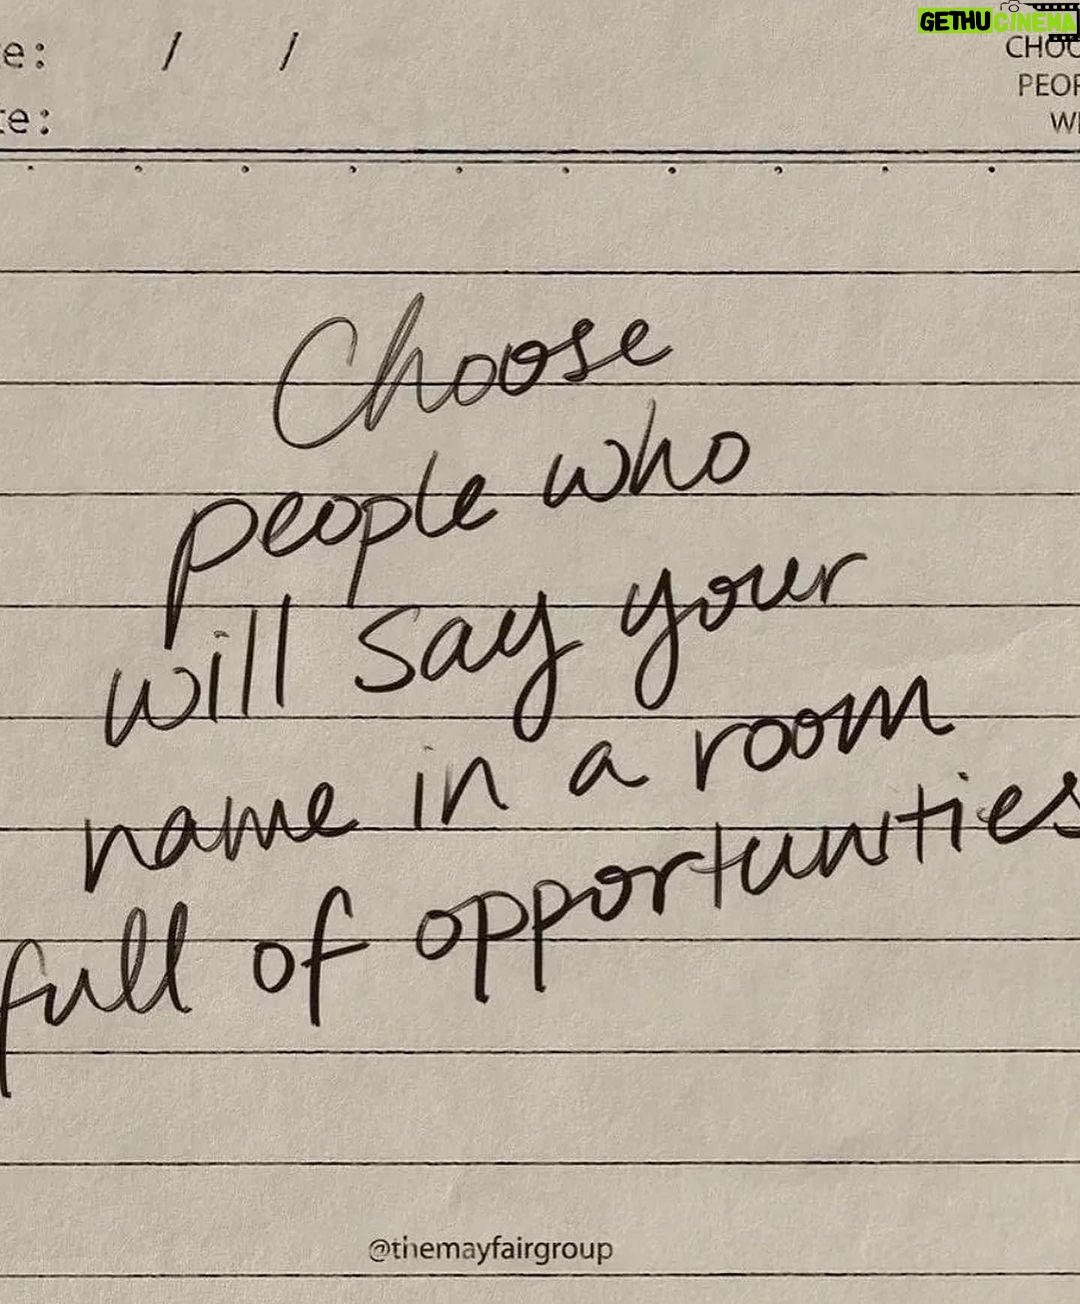 GETHUCINEMA
e: / /
te:
CHOO
PEOP
WI
Choose
people who
will say your
name in a room
full of opportunities
@themayfairgroup